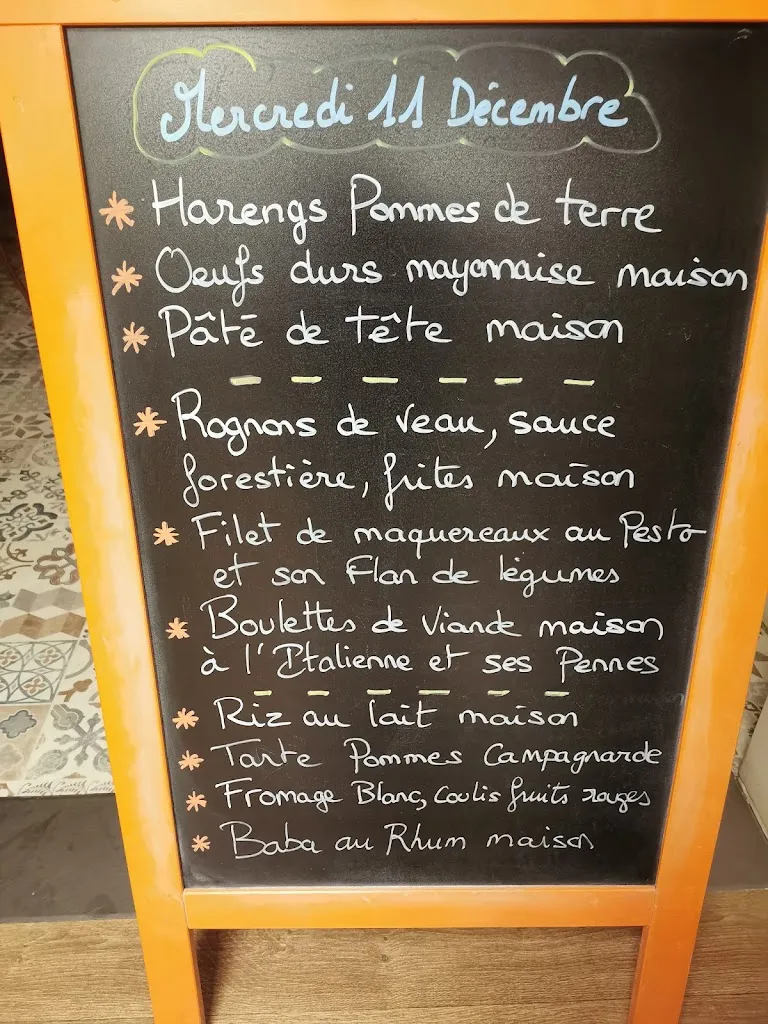 Mercredi 11 Décembre
* Harengs Pommes de terre
* Oeufs durs mayonnaise maison
* Pâté de tête maison
- - - - - -
* Rognons de veau, sauce
forestière, frites maison
* Filet de maquereaux au Pesto
et son Flan de légumes
* Boulettes de Viande maison
à l'Italienne et ses Pennes
- - - - - -
* Riz au lait maison
* Tarte Pommes Campagnarde
* Fromage Blanc, Coulis fruits rouges
* Baba au Rhum maison